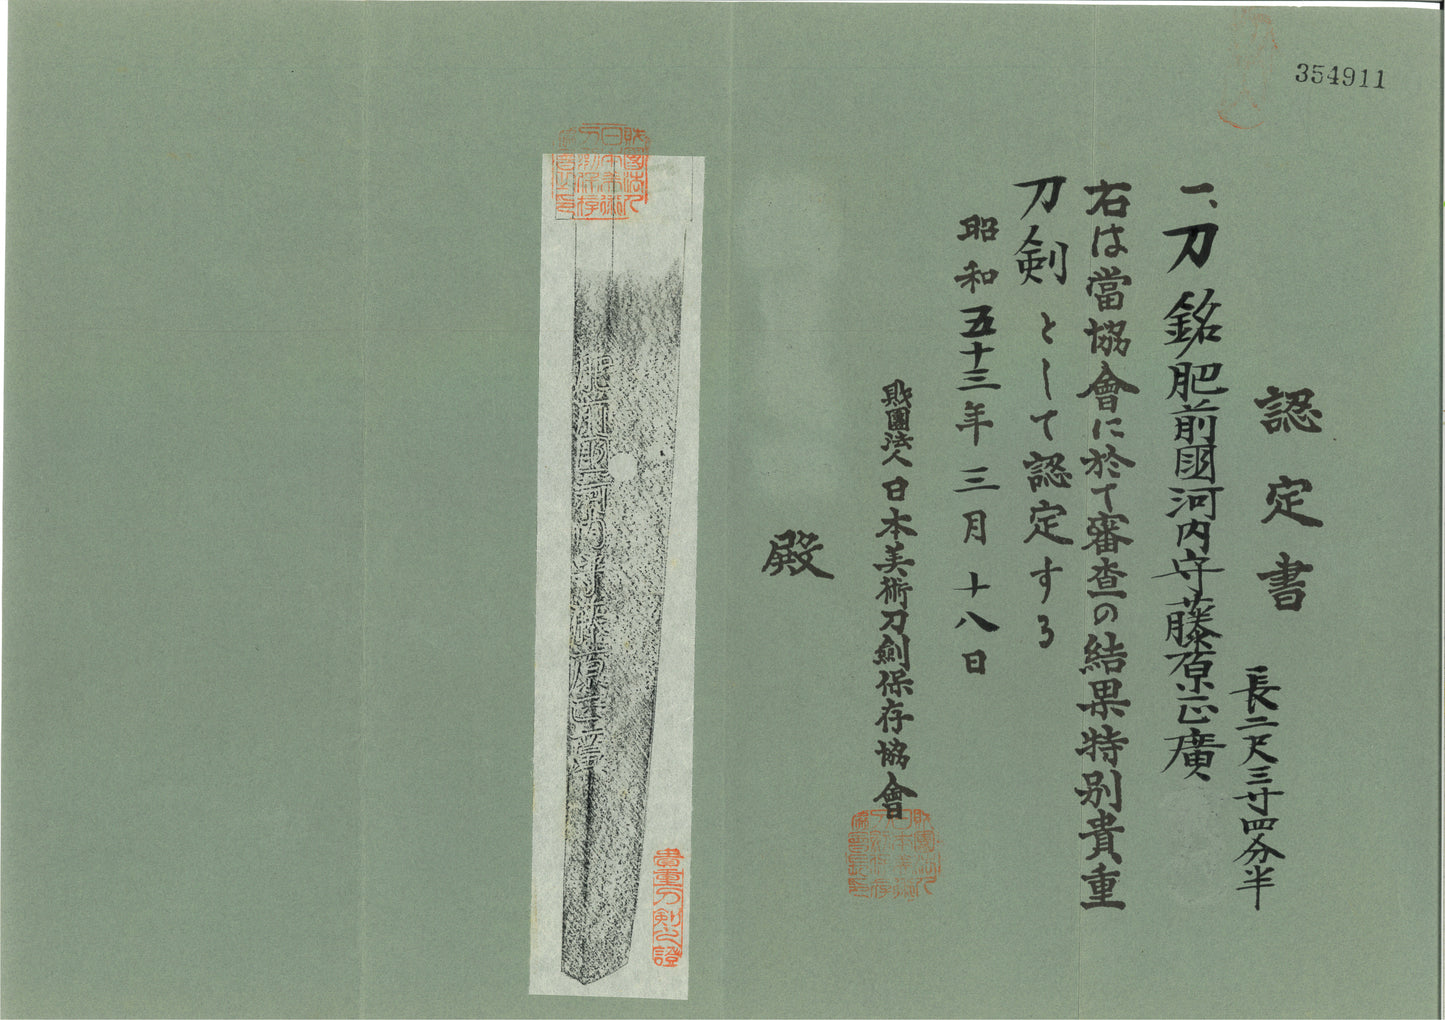 354911
認定書
長二尺三寸四分半
一、刀 銘 肥前國河内守藤原正廣
右は當協會に於て審査の結果特別貴重
刀剣として認定する
昭和五十三年三月十八日
財團法人日本美術刀劍保存協會
殿
肥前國河内守藤原正廣
貴重刀剣之證